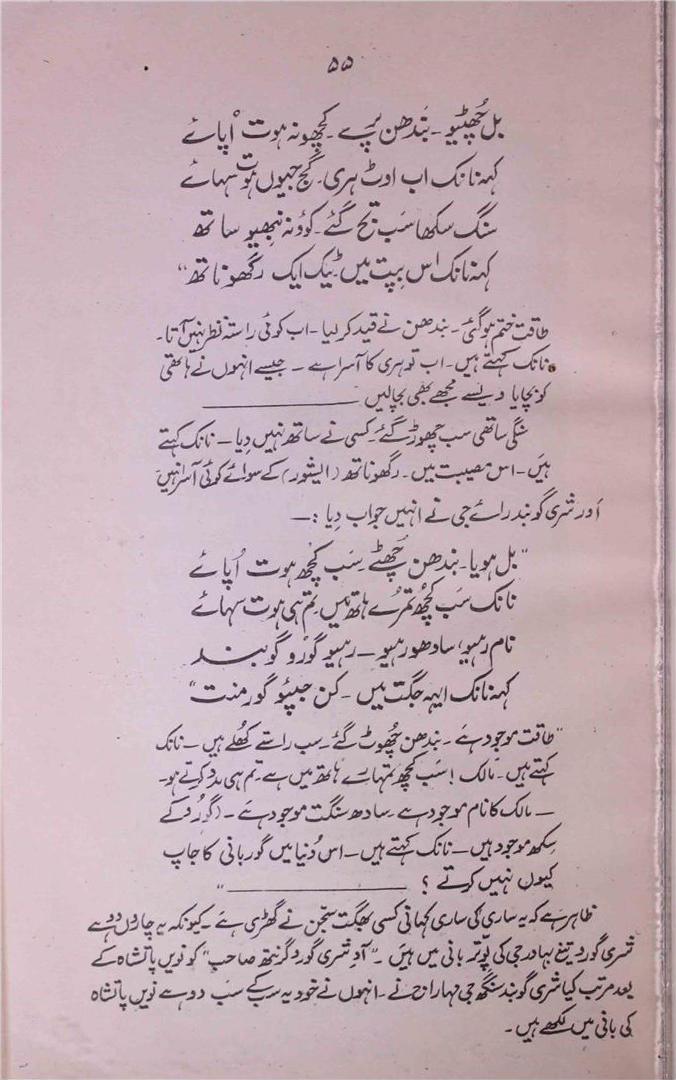 ۵۵
بل چُھٹیو۔ بَندھن پرے۔ کچھو نہ ہوت اُپائے
کہہ نانک اب اوٹ ہری۔ گج جیوں ہوت سہائے
سنگ سکھا سَب تج گئے۔ کوؤ نہ نبھیو ساتھ
کہہ نانک اس بِپت میں۔ ٹیک ایک رگھوناتھ"
طاقت ختم ہو گئی۔ بندھن نے قید کر لیا۔ اب کوئی راستہ نظر نہیں آتا۔
نانک کہتے ہیں۔ اب تو ہری کا آسرا ہے۔ جیسے انہوں نے ہاتھی
کو بچایا ویسے مجھے بھی بچالیں ———
سنگی ساتھی سب چھوڑ گئے۔ کسی نے ساتھ نہیں دیا۔ نانک کہتے
ہیں۔ اس مصیبت میں۔ رگھوناتھ (ایشور) کے سوائے کوئی آسرا نہیں
اور شری گوبند رائے جی نے انہیں جواب دیا :—
"بل ہویا۔ بندھن چُھٹے۔ سَب کچھ ہوت اُپائے
نانک سَب کچُھ تمرے ہاتھ میں۔ تم ہی ہوت سہائے
نام رہیو، سادھو رہیو۔ رہیو گورو گوبند
کہہ نانک ایہہ جگت میں۔ کن جپئو گورمنت"
"طاقت موجود ہے۔ بندھن چُھوٹ گئے۔ سب راستے کُھلے ہیں۔ نانک
کہتے ہیں۔ مالک! سَب کچھ تمہارے ہاتھ میں ہے۔ تم ہی مدد کرتے ہو۔
— مالک کا نام موجود ہے۔ سادھ سنگت موجود ہے۔ (گورو کے
سکھ موجود ہیں۔ نانک کہتے ہیں۔ اس دُنیا میں گوربانی کا جاپ
کیوں نہیں کرتے ؟ ———"
ظاہر ہے کہ یہ ساری کی ساری کہانی کسی بھگت سجن نے گھڑی ہے۔ کیونکہ یہ چاروں دوہے
شری گورو تیغ بہادر جی کی پوتر بانی میں ہیں۔ "آدِ شری گورو گرنتھ صاحب" کو نویں پاتشاہ کے
بعد مرتب کیا شری گوبند سنگھ جی مہاراج نے۔ انہوں نے خود یہ سب کے سب دوہے نویں پاتشاہ
کی بانی میں لکھے ہیں۔